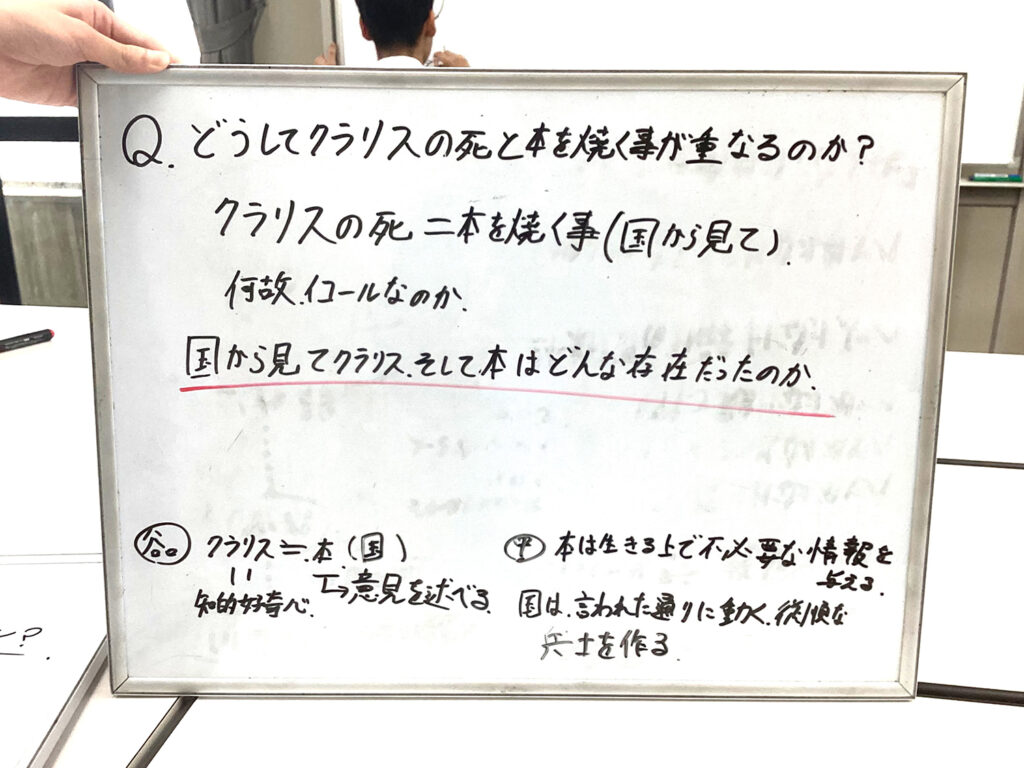 Q. どうしてクラリスの死と本を焼く事が重なるのか?
クラリスの死=本を焼く事(国から見て).
何故.イコールなのか.
国から見てクラリス.そして本はどんな存在だったのか.
谷 クラリス≒.本(国)
=
知的好奇心.
↳意見を述べる
平 本は生きる上で不必要な情報を
与える.
国は.言われた通りに動く.従順な
兵士を作る.
?.